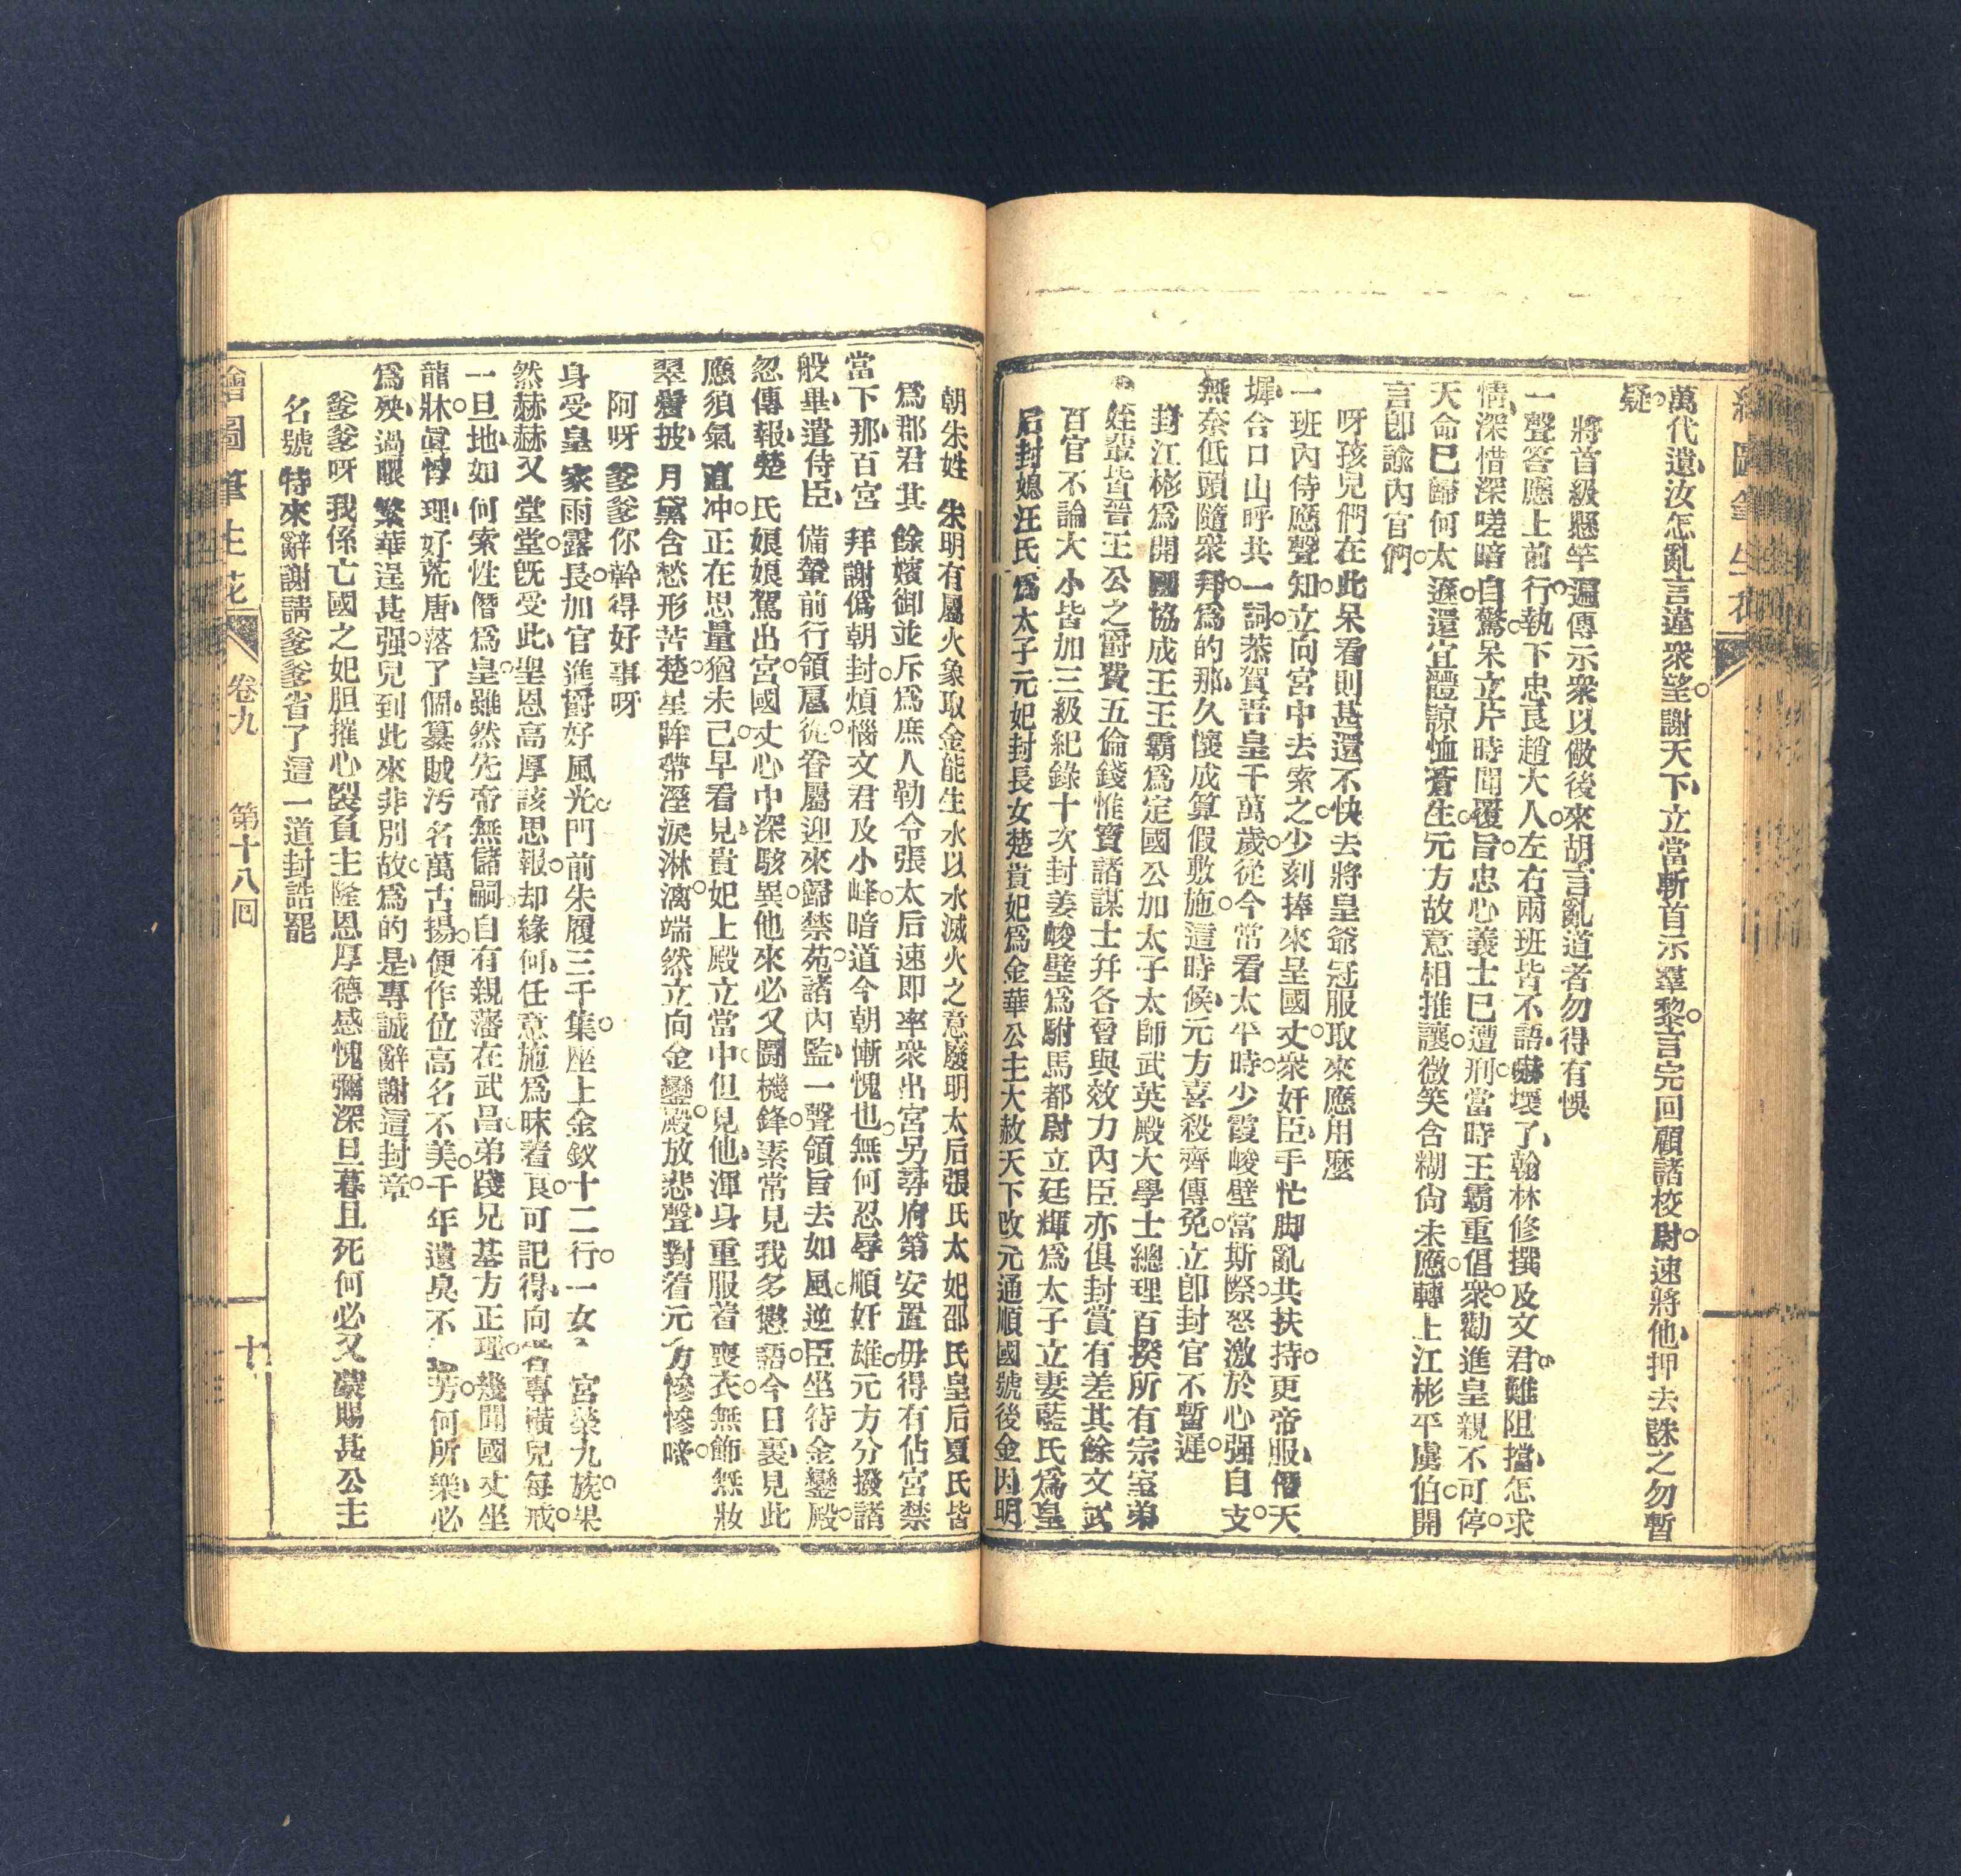 繪圖筆生花
萬代遺汝怎亂言違衆望○謝天下、立當斬首示羣黎○言完回顧諸校尉○速將他、押去誅之勿暫
疑○
將首級懸竿遍傳示衆以儆後來胡言亂道者勿得有悞
一聲答應上前行○執下忠良趙大人○左右兩班皆不語、嚇壞了、翰林修撰及文君○難阻擋、怎求
情、深惜深嗟暗自驚○呆立片時聞覆旨○忠心義士已遭刑○當時王霸重倡衆○勸進皇親不可停○
天命已歸何太遜○還宜體諒恤蒼生○元方故意相推讓○微笑含糊尙未應○轉上江彬平虜伯○開
言卽諭內官們○
呀孩兒們在此呆看則甚還不快去將皇爺冠服取來應用麼
一班內侍應聲知○立向宮中去索之○少刻捧來呈國丈○衆奸臣、手忙脚亂共扶持○更帝服、僭天
墀、合口山呼共一詞○恭賀吾皇千萬歲○從今常看太平時○少霞峻壁當斯際○怒激於心强自支○
無奈低頭隨衆拜○爲的那、久懷成算假敷施○這時候、元方喜殺齊傳免○立卽封官不暫遲○
封江彬爲開國協成王王霸爲定國公加太子太師武英殿大學士總理百揆所有宗室弟
姪輩皆晉王公之爵費五倫錢惟寶諸謀士幷各晉與效力內臣亦俱封賞有差其餘文武
百官不論大小皆加三級紀錄十次封姜峻壁爲駙馬都尉立廷輝爲太子立妻藍氏爲皇
后封媳汪氏爲太子元妃封長女楚貴妃爲金華公主大赦天下改元通順國號後金因明
朝朱姓朱明有屬火象取金能生水以水滅火之意廢明太后張氏太妃邵氏皇后夏氏皆
爲郡君其餘嬪御並斥爲庶人勒令張太后速卽率衆出宮另尋府第安置毋得有佔宮禁
當下、那百宮拜謝僞朝封○煩惱文君及小峰○暗道今朝慚愧也○無何忍辱順奸雄○元方分撥諸
般畢、遣侍臣、備輦前行領扈從○眷屬迎來歸禁苑○諸內監、一聲領旨去如風○逆臣坐待金鑾殿○
忽傳報、楚氏娘娘駕出宮○國丈心中深駭異○他來必又鬪機鋒○素常見我多懟語○今日裏、見此
應須氣直冲○正在思量猶未已○早看見、貴妃上殿立當中○但見他、渾身重服着喪衣○無飾無妝
翠鬢披、月黛含愁形苦楚○星眸帶溼淚淋漓○端然立向金鑾殿○放悲聲、對着元方慘慘啼○
阿呀爹爹你幹得好事呀
身受皇家雨露長○加官進爵好風光○門前朱履三千集○座上金釵十二行○一女宮榮九族○果
然赫赫又堂堂○旣受此、聖恩高厚該思報○却緣何、任意施爲昧着良○可記得、向專橫兒每戒○
一旦地、如何索性僭爲皇○雖然先帝無儲嗣○自有親藩在武昌○弟踐兄基方正理○幾聞國丈坐
龍牀○眞悖理、好荒唐、落了個、簒賊汚名萬古揚○便作位高名不美○千年遺臭不芳○何所樂、必
爲殃、過眼繁華逞甚强○兒到此來非別故○爲的是、專誠辭謝這封章○
爹爹呀我係亡國之妃胆摧心裂負主隆恩厚德感愧彌深旦暮且死何必又讓賜甚公主
名號特來辭謝請爹爹省了這一道封誥罷
繪圖筆生花 卷九 第十八回 十